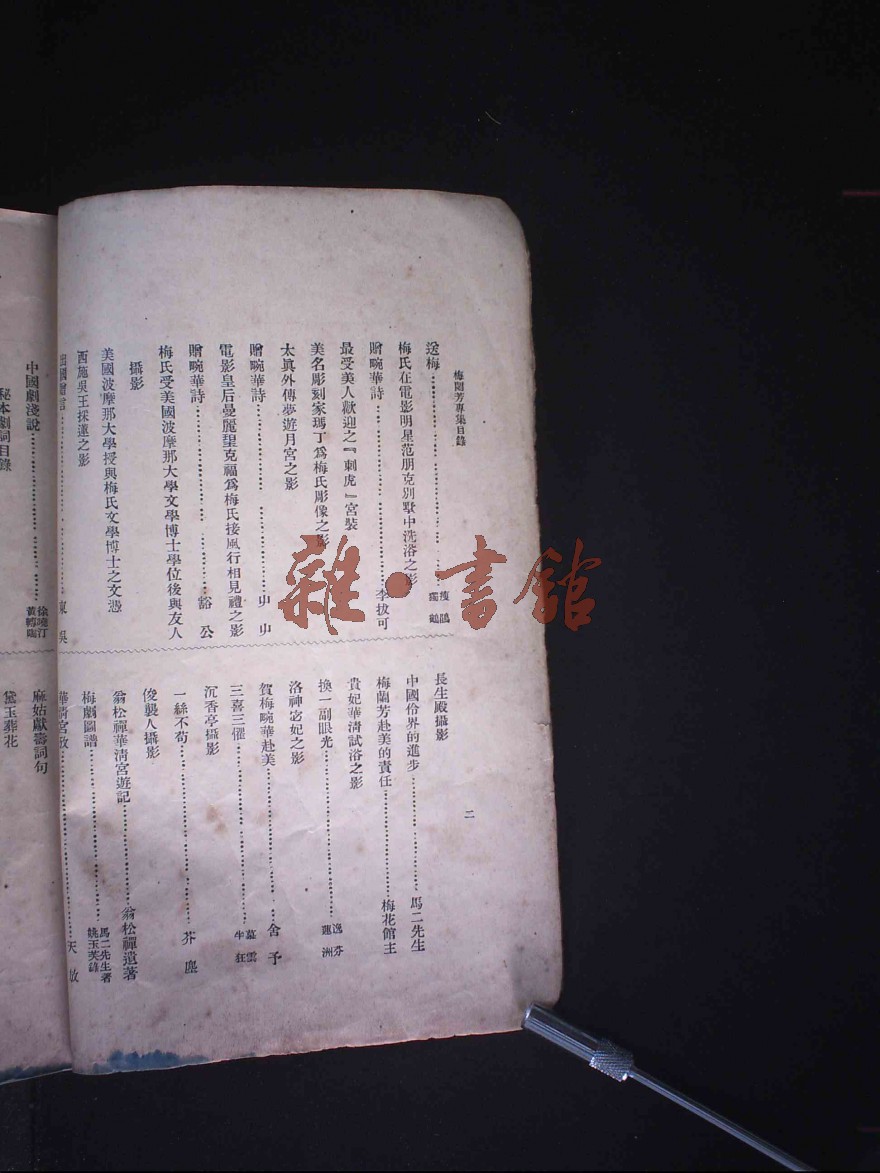 梅蘭芳專集目錄
送梅
瘦鵑
獨鶴
梅氏在電影明星范朋克別墅中洗浴之影
贈畹華詩……李拔可
最受美人歡迎之『刺虎』宮裝
美名彫刻家瑪丁爲梅氏彫像之影
太眞外傳夢遊月宮之影
贈畹華詩……
電影皇后曼麗璧克福爲梅氏接風行相見禮之影
贈畹華詩……豁公
梅氏受美國波摩那大學文學博士學位後與友人
攝影
美國波摩那大學授與梅氏文學博士之文憑
西施吳王採蓮之影
出國贈言……東吳
長生殿攝影
中國伶界的進步……馬二先生
梅蘭芳赴美的責任……梅花館主
貴妃華清試浴之影
換一副眼光……逸芬
洛神宓妃之影
賀梅畹華赴美……舍予
三喜三懼……
沉香亭攝影
一絲不苟……芥塵
俊襲人攝影
翁松禪華清宮遊記……翁松禪遺著
梅劇圖譜……馬二先生著
姚玉芙
華清宮
天
二
中國劇淺說……
秘本劇詞目錄
麻姑獻壽詞句
黛玉葬花
雜·書館